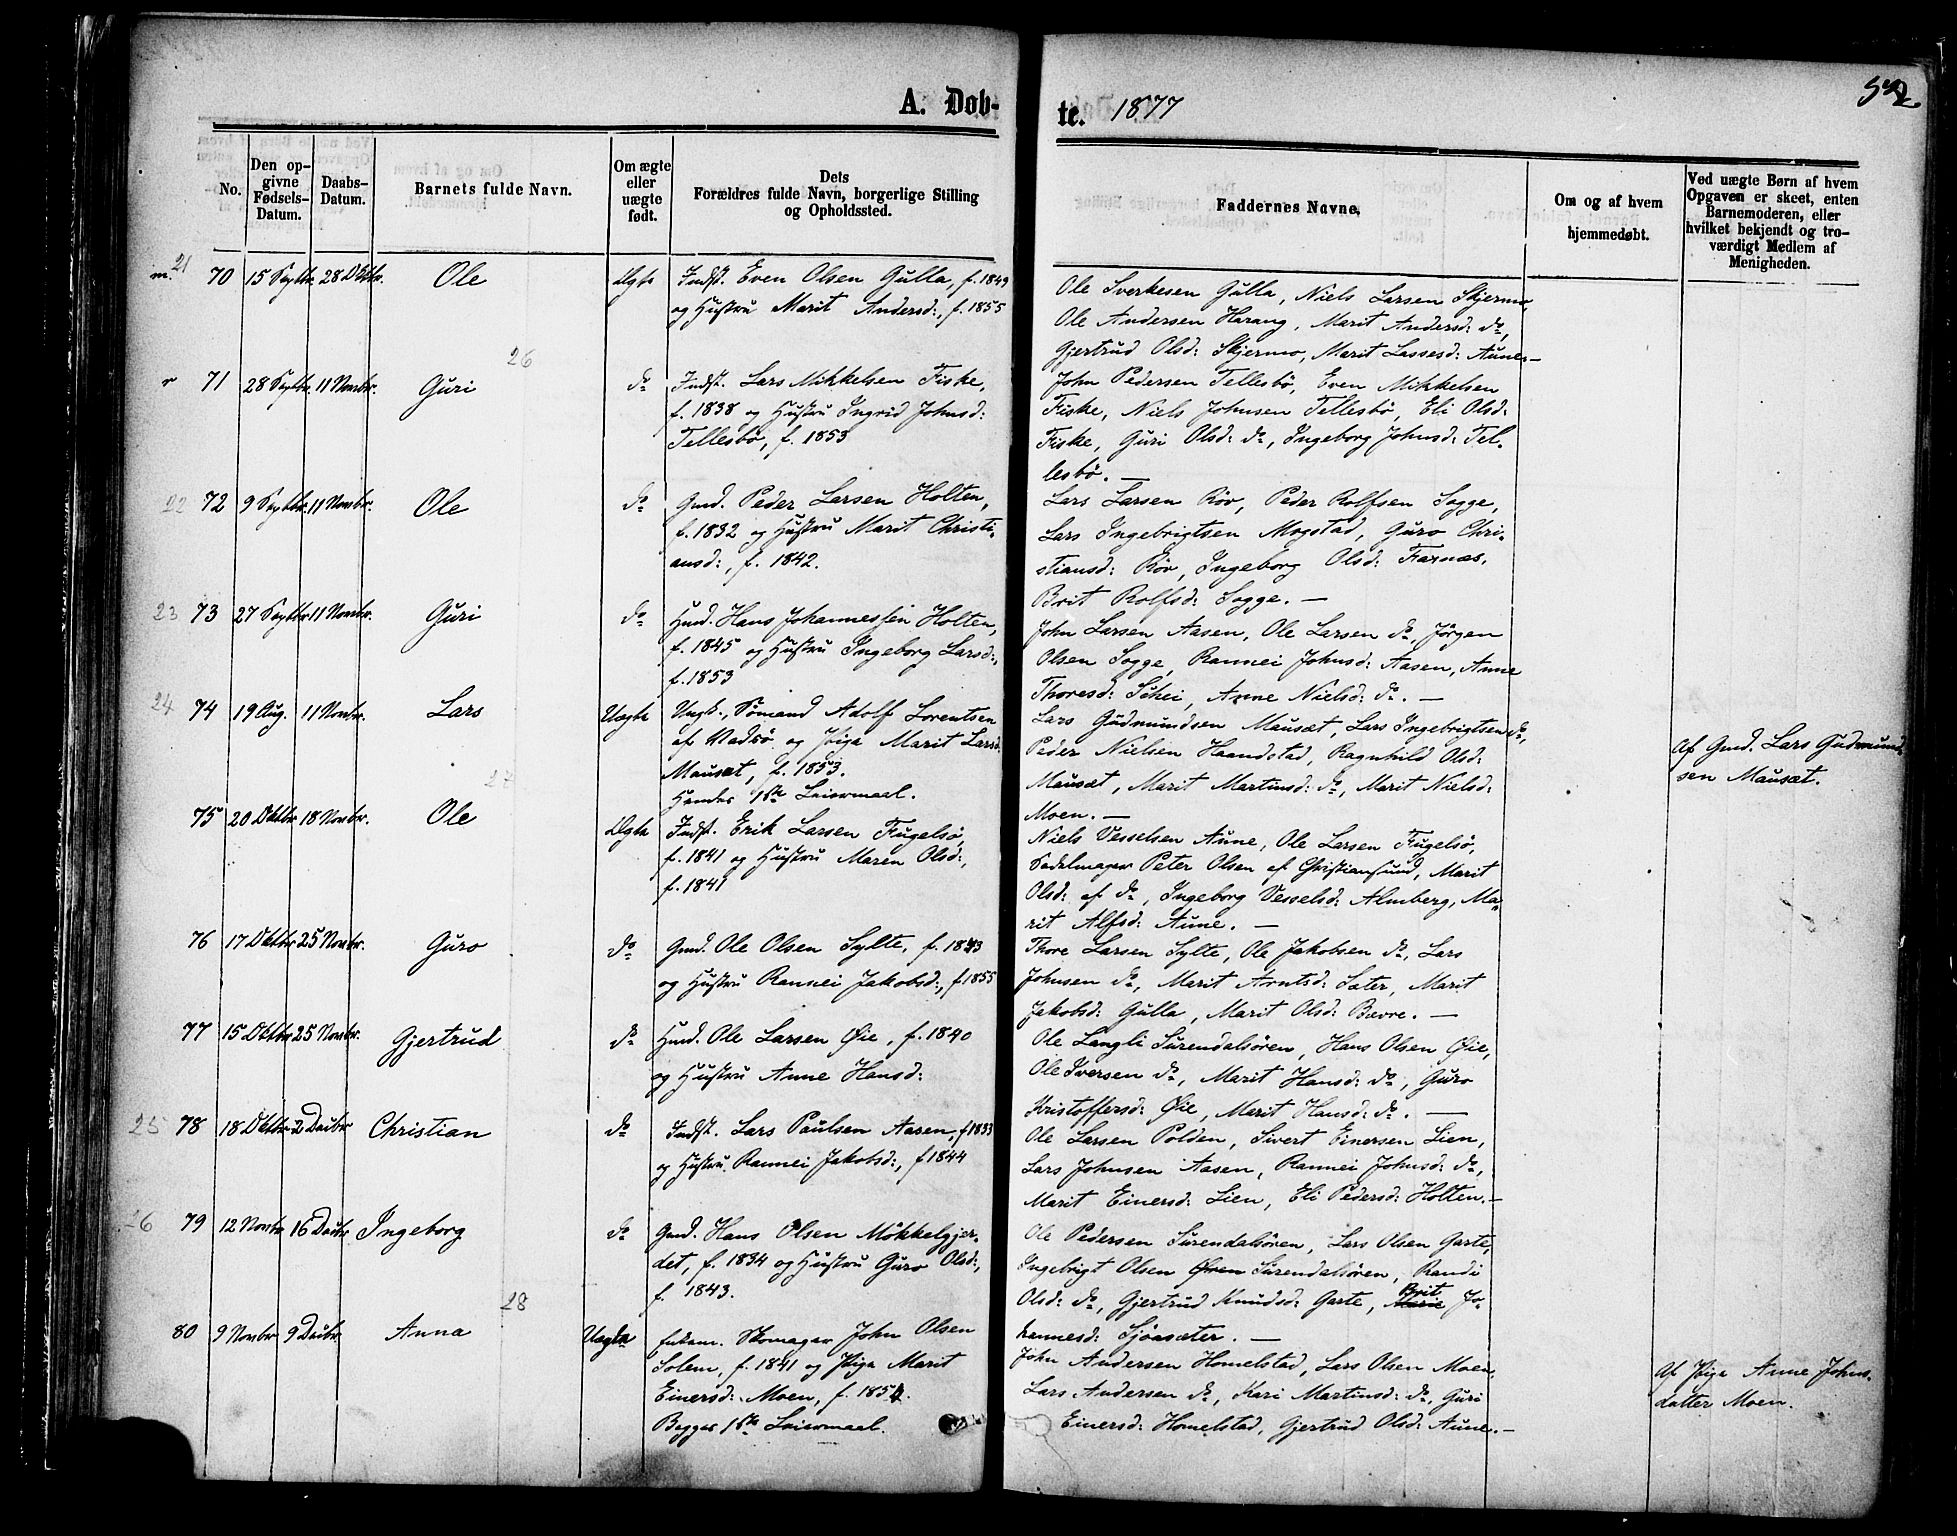 A. Døb-
te. 1877
No.
Den op-
givne
Fødsels-
Datum.
Daabs-
Datum.
Barnets fulde Navn.
Om ægte
eller
uægte
født.
Dets
Forældres fulde Navn, borgerlige Stilling
og Opholdssted.
Faddernes Navne.
Om og af hvem
hjemmedøbt.
Ved uægte Børn af hvem
Opgaven er skeet, enten
Barnemoderen, eller
hvilket bekjendt og tro-
værdigt Medlem af
Menigheden.
21
70 15 Septbr. 28 Oktbr. Ole Ægte Indst. Even Olsen Gulla, f. 1849
og Hustru Marit Andersd:, f. 1855
Ole Sverkesen Gulla, Niels Larsen Skjermo,
Ole Andersen Harang, Marit Andersd: do,
Gjertrud Olsd: Skjermo, Marit Lassesd: Aune.—
26
71 28 Septbr. 11 Novbr. Guri do Indst. Lars Mikkelsen Fiske,
f. 1838 og Hustru Ingrid Johnsd:
Tellesbø, f. 1853
John Pedersen Tellesbø, Even Mikkelsen
Fiske, Niels Johnsen Tellesbø, Eli Olsd:
Fiske, Guri Olsd: do, Ingeborg Johnsd: Tel-
lesbø. —
22 72 9 Septbr. 11 Novbr. Ole do Gmd. Peder Larsen Holten,
f. 1832 og Hustru Marit Christi-
ansd:, f. 1842.
Lars Larsen Røv, Peder Rolfsen Sogge,
Lars Ingebrigtsen Mogstad, Guro Chri-
stiansd: Røv, Ingeborg Olsd: Farnæs,
Brit Rolfsd: Sogge. —
23 73 27 Septbr. 11 Novbr. Guri do Hmd. Hans Johannessen Holten,
f. 1845 og Hustru Ingeborg Larsd:,
f. 1853
John Larsen Aasen, Ole Larsen do, Jørgen
Olsen Sogge, Rannei Johnsd: Aasen, Anne
Thoresd: Schei, Anne Nielsd: do. —
24 74 19 Aug. 11 Novbr. Lars Uægte Ungk., Sømand Adolf Lorentsen
af Vadsø og Pige Marit Larsd:
Mausæt, f. 1853.
Hendes 1ste Leiermaal.
Lars Gudmundsen Mausæt, Lars Ingebrigtsen do,
Peder Nielsen Haandstad, Ragnhild Olsd:
Mausæt, Marit Martinsd: do, Marit Nielsd:
Moen. —
Af Gmd. Lars Gudmund-
sen Mausæt.
27
75 20 Oktbr 18 Novbr. Ole Ægte Indst. Erik Larsen Fugelsø,
f. 1841 og Hustru Maren Olsd:,
f. 1841
Niels Vesselsen Aune, Ole Larsen Fugelsø,
Sadelmager Peter Olsen af Christiansund, Marit
Olsd: af do, Ingeborg Vesselsd: Almberg, Ma-
rit Alfsd: Aune. —
76 17 Oktbr 25 Novbr. Guro do Gmd. Ole Olsen Sylte, f. 1843
og Hustru Rannei Jakobsd:, f. 1855
Thore Larsen Sylte, Ole Jakobsen do, Lars
Johnsen do, Marit Arntsd: Sæter, Marit
Jakobsd: Gulla, Marit Olsd: Bævre. —
77 15 Oktbr 25 Novbr. Gjertrud do Hmd. Ole Larsen Øie, f. 1840
og Hustru Anne Hansd:
Ole Langli Surendalsøren, Hans Olsen Øie,
Ole Iversen do, Marit Hansd: do, Guro
Kristoffersd: Øie, Marit Hansd: do. —
25 78 18 Oktbr 2 Decbr Christian do Indst. Lars Paulsen Aasen, f. 1833
og Hustru Rannei Jakobsd:, f. 1844
Ole Larsen Polden, Sivert Einersen Lien,
Lars Johnsen Aasen, Rannei Johnsd: do,
Marit Einersd: Lien, Eli Pedersd: Holten.—
26 79 12 Novbr 16 Decbr. Ingeborg do Gmd. Hans Olsen Møkkelgjer-
det, f. 1834 og Hustru Guro Olsd:,
f. 1843.
Ole Pedersen Surendalsøren, Lars Olsen Garte,
Ingebrigt Olsen Øren Surendalsøren, Randi
Olsd: do, Gjertrud Knudsd: Garte, Marie Brit Jo-
hannesd: Sjøasæter. —
28
80 9 Novbr 9 Decbr Anna Uægte Enkem. Skomager John Olsen
Solem, f. 1841 og Pige Marit
Einersd: Moen, f. 1854.
Begges 1ste Leiermaal.
John Andersen Homelstad, Lars Olsen Moen,
Lars Andersen do, Kari Martinsd: do, Guri
Einersd: Homelstad, Gjertrud Olsd: Aune.—
Af Pige Anne Johns-
datter Moen.